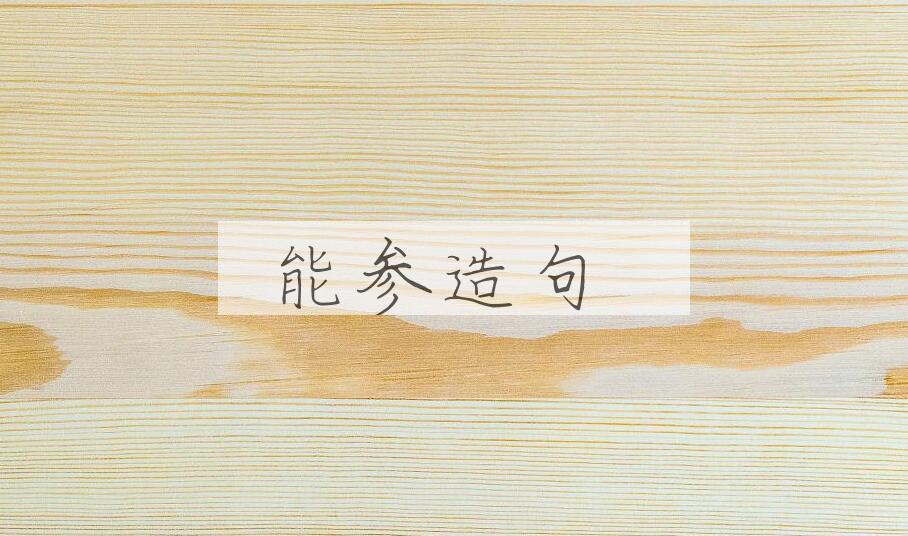 能参造句